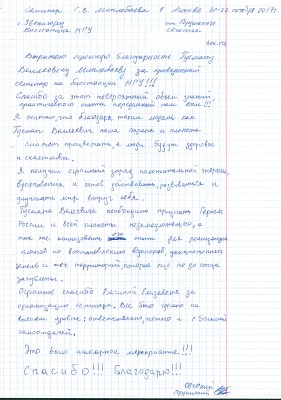 Семинар Г.В. Миннебаева в Москве 20-22 октября 2017г.
г. Звенигород
биостанция МГУ
от
Отзыв
Выражаю огромную благодарность Гусману
Валеевичу Миннебаеву за проведенный
семинар на биостанции МГУ!!!
Спасибо за этот невероятный объем знаний
практического опыта переданный нам Вам!!!
Я считаю, что благодаря таким людям как
Гусман Валеевич наша страна и планета
сможет процветать, а люди будут здоровы
и счастливы.
Я получил огромный заряд положительной энергии,
вдохновения и готов действовать, развиваться и
улучшать мир вокруг себя.
Гусмана Валеевича необходимо признать Героем
России и всей планеты незамедлительно, а
так же использовать его опыт для реализации
планов по восстановлению водоёмов,
земель и тех территорий, которые еще не до конца
загублены.
Огромное спасибо Елизавете за
организацию семинара. Все было сделано на
высшем уровне: ответственно, четко и с большой
самоотдачей.
Это было шикарное мероприятие!!!
Спасибо!!! Благодарю!!!